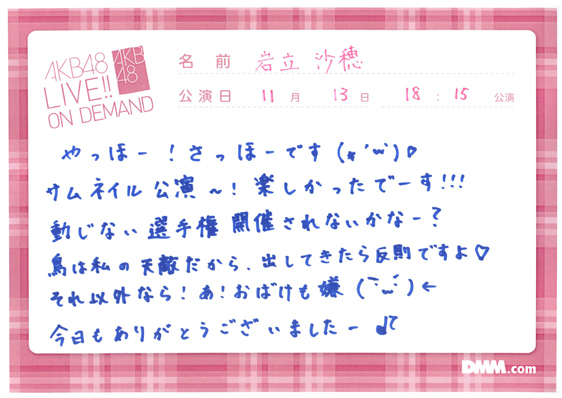 AKB48
LIVE!!
ON DEMAND
AKB
48
名前 岩立沙穂
公演日 11月 13日 18:15 公演
やっほー！さっほーです(*'ω')♡
サムネイル公演〜！楽しかったでーす!!!
動じない選手権開催されないかなー？
鳥は私の天敵だから、出してきたら反則ですよ♡
それ以外なら！あ！おばけも嫌(˘ω˘)←
今日もありがとうございましたー♪
DMM.com